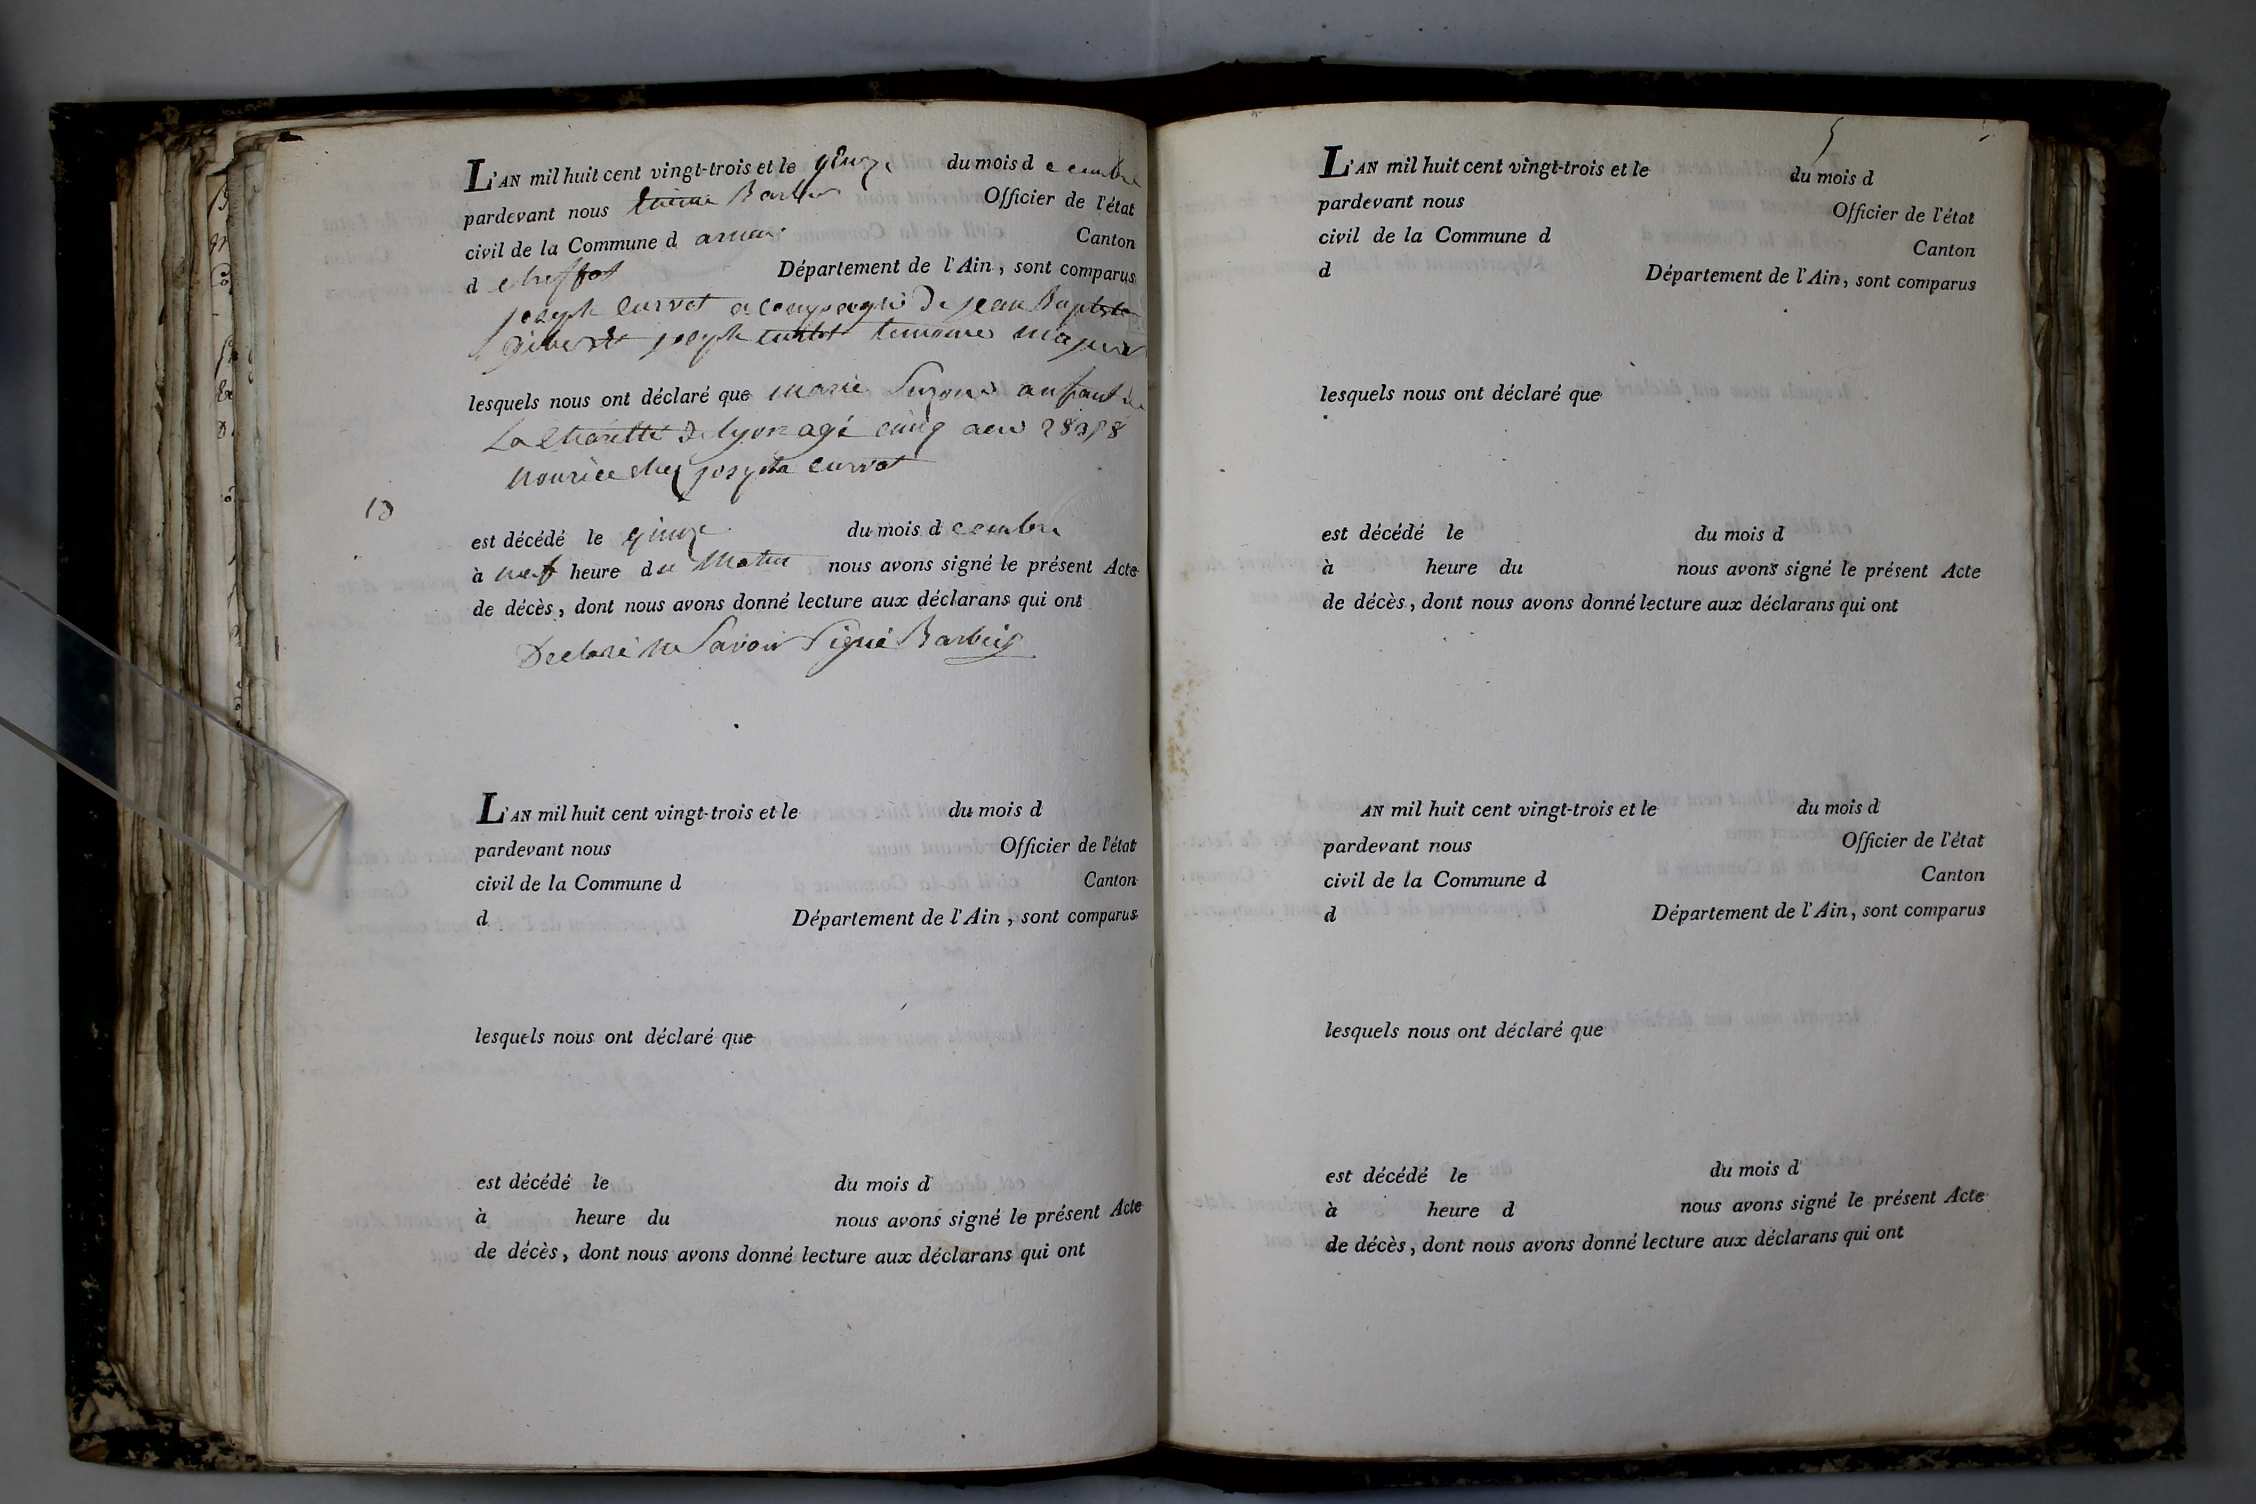 L'AN mil huit cent vingt-trois et le quinze du mois d ecembre
pardevant nous Barbu Officier de l'état
civil de la Commune d Canton
d Département de l'Ain, sont comparus
joseph Curvet acompagné de jean Baptiste
joseph temoins majeur
lesquels nous ont déclaré que marie anfant de
La Charitté de lyon agé cinq ans
nourice chez joseph Curvet
13
est décédé le quinze du mois d ecembre
à neuf heure du Matin nous avons signé le présent Acte
de décès, dont nous avons donné lecture aux déclarans qui ont
Declaré ne Savoir Signé
L'AN mil huit cent vingt-trois et le du mois d
pardevant nous Officier de l'état
civil de la Commune d Canton
d Département de l'Ain, sont comparus
lesquels nous ont déclaré que
est décédé le du mois d
à heure du nous avons signé le présent Acte
de décès, dont nous avons donné lecture aux déclarans qui ont
L'AN mil huit cent vingt-trois et le du mois d
pardevant nous Officier de l'état
civil de la Commune d Canton
d Département de l'Ain, sont comparus
lesquels nous ont déclaré que
est décédé le du mois d
à heure du nous avons signé le présent Acte
de décès, dont nous avons donné lecture aux déclarans qui ont
AN mil huit cent vingt-trois et le du mois d
pardevant nous Officier de l'état
civil de la Commune d Canton
d Département de l'Ain, sont comparus
lesquels nous ont déclaré que
est décédé le du mois d
à heure d nous avons signé le présent Acte
de décès, dont nous avons donné lecture aux déclarans qui ont